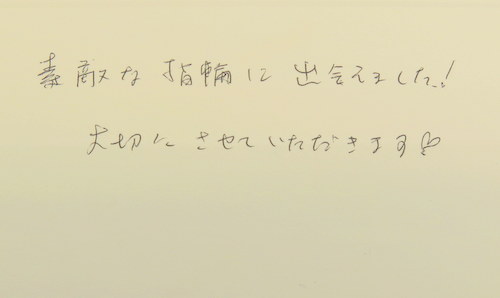 素敵な指輪に出会えました!
大切にさせていただきます♡